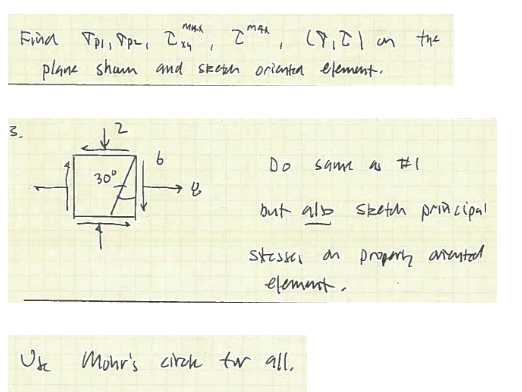 Find σp1, σp2, τxy^max, τ^max, (σ,τ) on the
plane shown and sketch oriented element.
3.
2
6
30°
8
Do same as #1
but also sketch principal
stresses on properly oriented
element.
Use Mohr's circle for all.